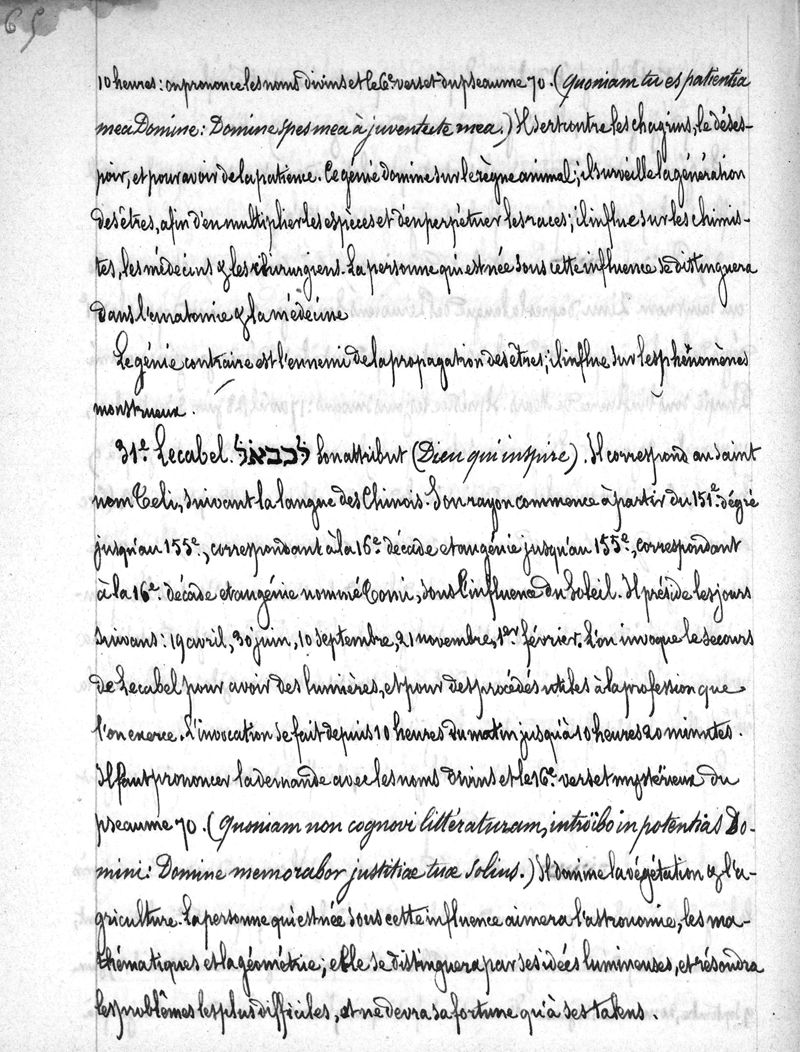 65
10 heures: on prononce les noms divins et le 6e. verset du pseaume 70. (Quoniam tu es patientia
mea Domine: Domine spes mea à juventute mea.) Il sert contre les chagrins, le déses-
poir, et pour avoir de la patience. Ce génie domine sur le règne animal; il surveille la génération
des êtres, afin d'en multiplier les espèces et d'en perpétuer les races; il influe sur les chimis-
tes, les médecins & les chirurgiens. La personne qui est née sous cette influence se distinguera
dans l'anatomie & la médecine
Le génie contraire est l'ennemi de la propagation des êtres; il influe sur les phénomènes
monstrueux.
31e. Lecabel. לכבאל Son attribut (Dieu qui inspire). Il correspond au Saint
nom Teli, suivant la langue des Chinois. Son rayon commence à partir du 151e. dégré
jusqu'au 155e., correspondant à la 16e. décade et au génie jusqu'au 155e., correspondant
à la 16e. décade et au génie nommé Tomi, sous l'influence du Soleil. Il préside les jours
suivans: 19 avril, 30 juin, 10 septembre, 21 novembre, 1er. février. L'on invoque le secours
de Lecabel pour avoir des lumières, et pour des procédés utiles à la profession que
l'on exerce. L'invocation se fait depuis 10 heures du matin jusqu'à 10 heures 20 minutes.
Il faut prononcer la demande avec les noms divins et le 16e. verset mystérieux du
pseaume 70. (Quoniam non cognovi littératuram, introïbo in potentias Do-
mini: Domine memorabor justitiæ tuæ solius.) Il domine la végétation & l'a-
griculture. La personne qui est née sous cette influence aimera l'astronomie, les ma-
thématiques et la géométrie; elle se distinguera par ses idées lumineuses, et résoudra
les problêmes les plus difficiles, et ne devra sa fortune qu'à ses talens.